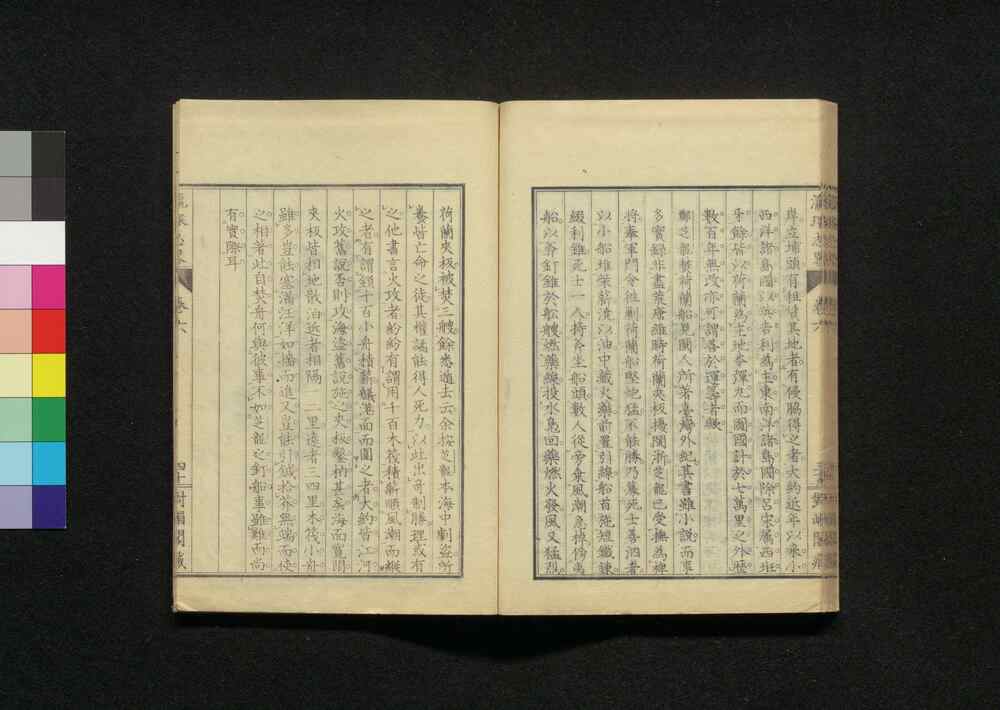 岸立埔頭有租賃其地者有侵脇得之者大約近年以來小
西洋諸島國以英吉利為主東南洋諸島國除呂宋屬西班
牙餘皆以荷蘭為主地本彈丸而國計於七萬里之外歷
數百年無改亦可謂善於運籌者歟
鄭芝龍焚荷蘭船見閩人所著臺灣外紀其書雖小說而事
多實錄非盡荒唐維時荷蘭夾板擾閩浙芝龍已受撫為裨
將奉軍門令往剿荷蘭船堅地猛不能勝乃募死士善泅者
以小船堆柴薪澆以油中藏火藥前置引線船首施短鐵鍊
綴利錐死士一人持斧坐船頭數人從旁乘風潮急棹傍夷
船以斧釘錐於船艘燃藥線投水鳧回藥燃火發風又猛烈
荷蘭夾板被焚三艘餘悉遁去云余按芝龍本海中劇盜所
養皆亡命之徒其權譎能得人死力以此出奇制勝理或有
之他書言火攻者紛紛有謂用千百木筏積薪順風潮而縱
之者有謂領十百小舟積薪截港面面圍之者大約皆江河
火攻舊說否則攻海盜舊說施之夾板鑿枘甚矣海面寬闊
夾板皆相地散泊近者相隔一二里遠者三四里木筏小舟
雖多豈能塞滿汪洋如牆而進又豈能引鍼拾芥無端而使
之相著此自焚舟何與彼事不如芝龍之釘船事雖難而尚
有實際耳
卷六
四十